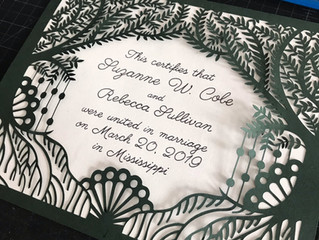 This certifies that
Suzanne W. Cobe
and
Rebecca Sullivan
were united in marriage
on March 20, 2019
in Mississippi